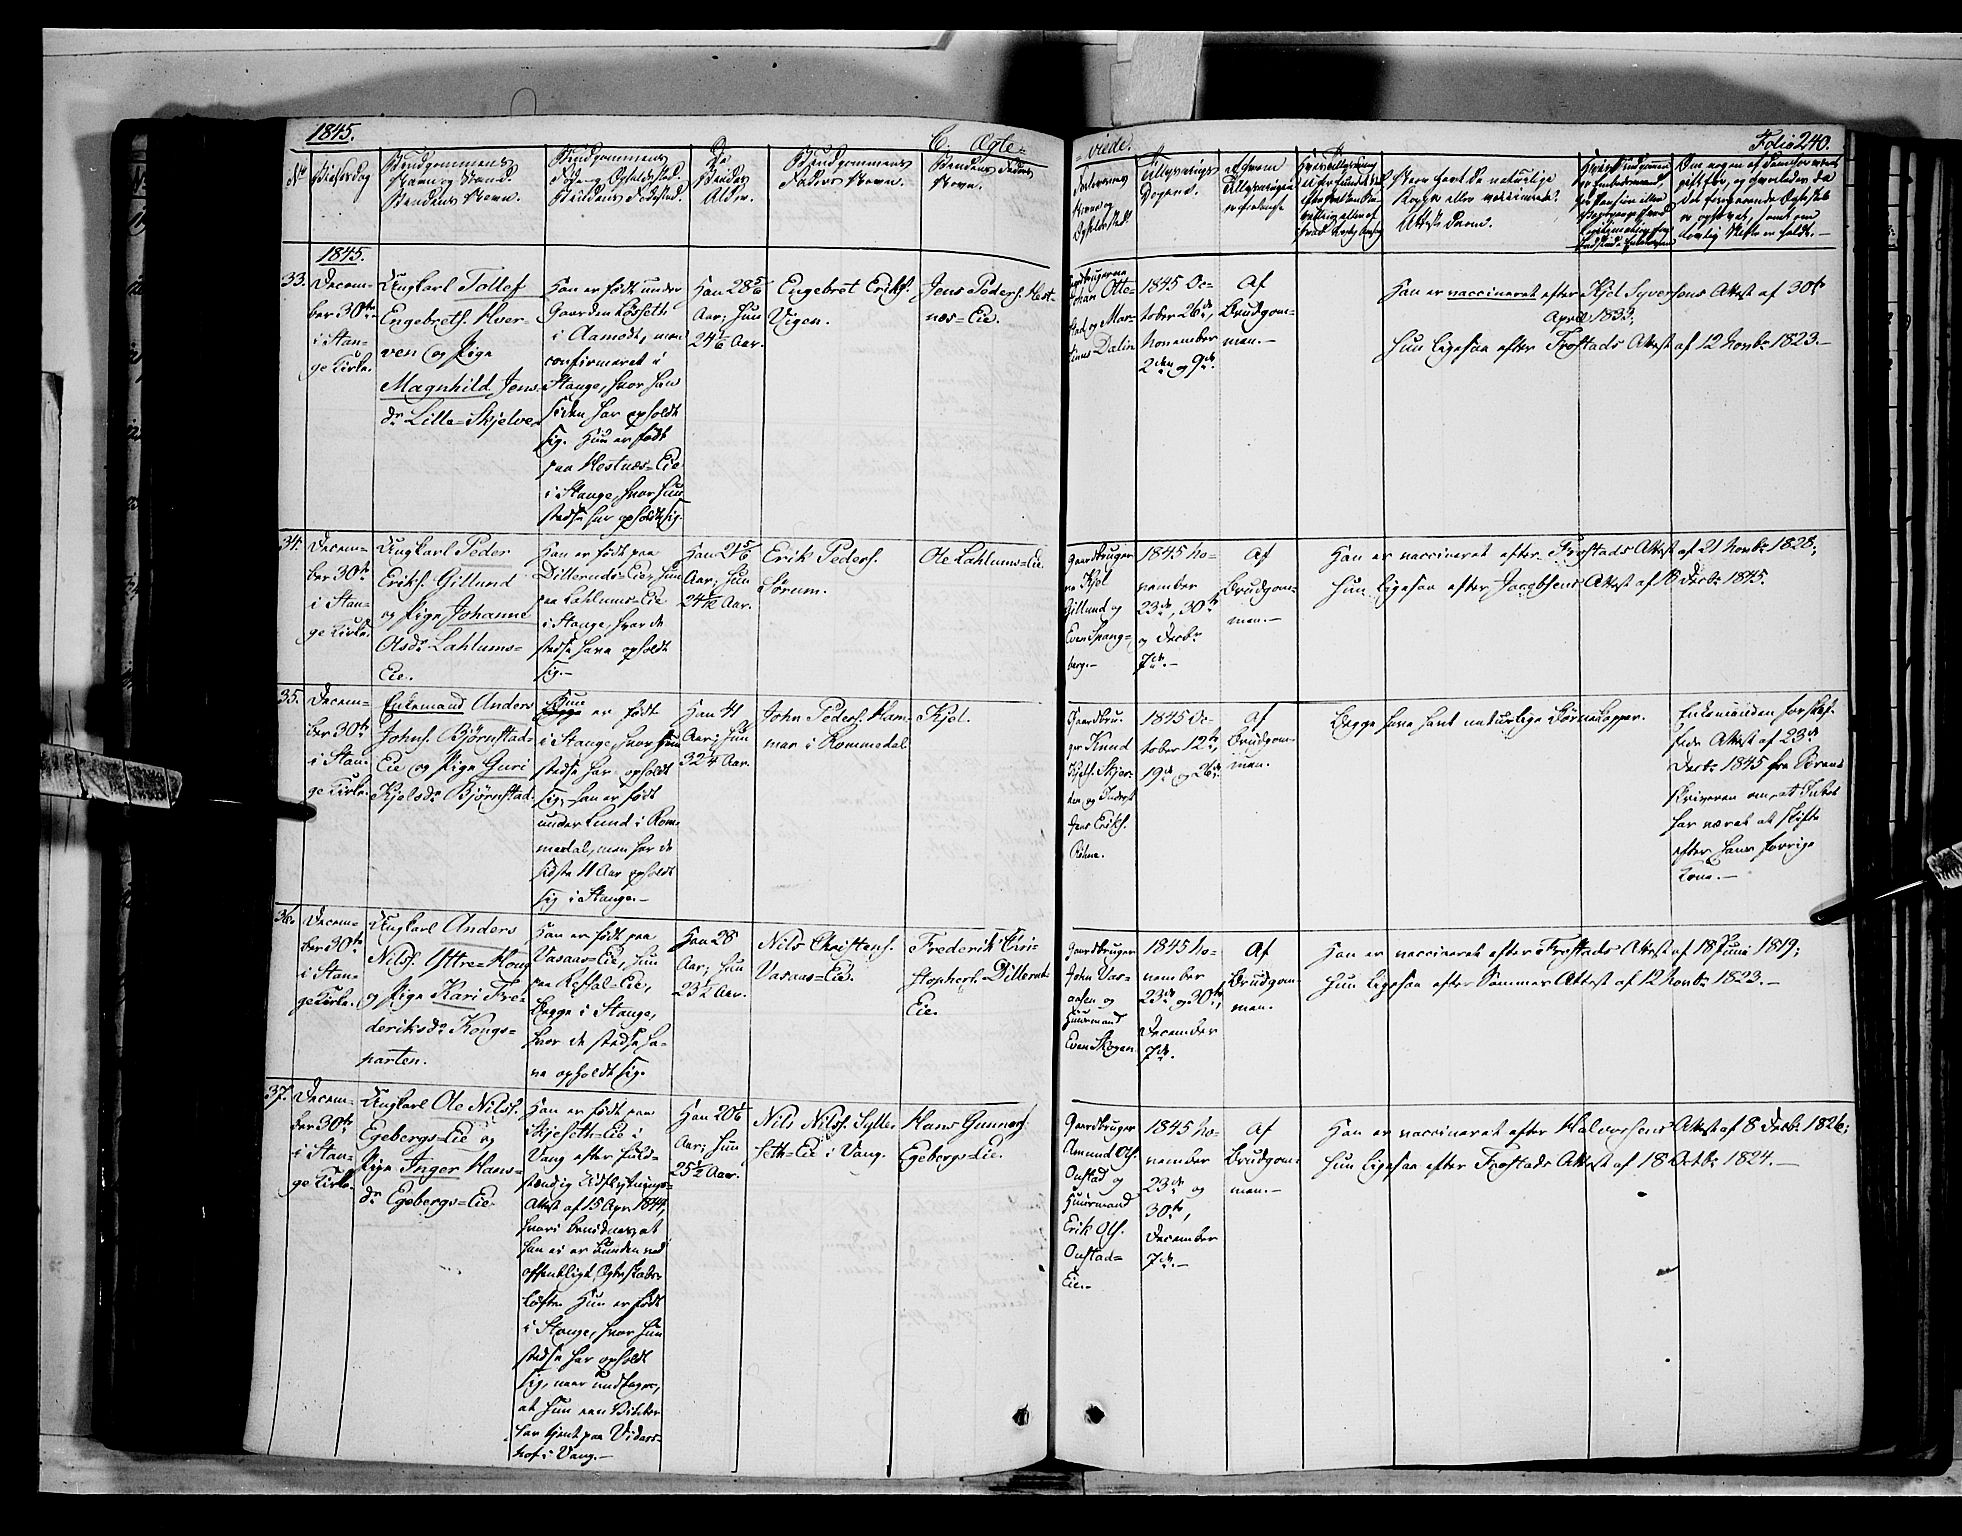 1845.
C. Ægte=
=viede.
Folio 240.
No
Vielsesdag
Brudgommens
Navn og Stand
Brudens Navn.
Brudgommens
Føde og Opholdssted.
Brudens Fødested.
De
Viedes
Alder.
Brudgommens
Faders Navn.
Brudens Faders
Navn.
Forlovernes
Navn og
Opholdssted.
Tillysnings
Dagene.
Af hvem
Tillysningen
er forlangt
Have havt de naturlige
Kopper eller vaccineret?
Attest derom.
1845.
33.
Decem=
ber 30te
i Stan=
ge Kirke.
Ungkarl Tollef
Engebrets. Hver=
ven og Pige
Magnhild Jens=
dr Lille=Skjelve.
Han er født under
Gaarden Løsseth
i Aamodt, men
confirmeret i
Stange, hvor han
siden har opholdt
sig. Hun er født
paa Hestnæs=Eie
i Stange, hvor hun
stedse har opholdt sig.
Han 28 5/6
Aar; hun
24 1/6 Aar.
Engebret Eriks.
Vigen.
Jens Peders. Hest=
næs=Eie.
Gaardbrugerne
Johan Otte=
stad og Mar=
tinus Dalin
1845 Oc=
tober 26de,
November
2den og 9de.
Af
Brudgom=
men.—
Han er vaccineret efter Kjel Syversens Attest af 30te
April 1833;
hun ligesaa efter Frostads Attest af 12 Novbr 1823.—
34.
Decem=
ber 30te
i Stan=
ge Kirke.
Ungkarl Peder
Eriks. Gillund
og Pige Johanne
Olsdr Lahlums=
Eie.
Han er født paa
Dillerud=Eie, hun
paa Lahlums=Eie
i Stange, hvor de
stedse have opholdt
sig.—
Han 21 5/6
Aar; hun
24 1/12 Aar.
Erik Peders.
Sørum.
Ole Lahlums=Eie.
Gaardbruger=
ne Kjel
Gillund og
Even Spang=
berg.—
1845 No=
vember
23de, 30te
og Decbr
7de.—
Af
Brudgom=
men.—
Han er vaccineret efter Frostads Attest af 21 Novbr 1828;
hun ligesaa efter Jacobsens Attest af 18 Decbr 1845.
35.
Decem=
ber 30te
i Stan=
ge Kirke.
Enkemand Anders
Johns. Bjørnstad=
Eie og Pige Guri
Kjelsdr Bjørnstad.
Hun er født
i Stange, hvor hun
stedse har opholdt
sig, han er født
under Lund i Rom=
medal, men har de
sidste 11 Aar opholdt
sig i Stange.—
Han 41
Aar; hun
32 1/4 Aar.
John Peders. Ham=
mar i Rommedal.
Kjel.
Gaardbru=
ger Knud
Kjels. Skjer=
den og Inderst
Jens Eriks.
Røhne.
1845 Oc=
tober 12te,
19de og 26de.
Af
Brudgom=
men.
Begge have havt naturlige Børnekopper.
Enkemanden
Attest af 23de
Decbr 1845 fra Soren=
skriveren om, at Intet
har været at skifte
efter hans forrige
Kone.—
36.
Decem=
ber 30te
i Stan=
ge Kirke.
Ungkarl Anders
Nils. Yttre=Kong
og Pige Kari Fre=
deriksdr Kongs=
parten.
Han er født paa
Vasaas=Eie, hun
paa Refsal=Eie,
begge i Stange,
hvor de stedse ha=
ve opholdt sig.
Han 28
Aar; hun
23 1/2 Aar.
Nils Christens.
Vasaas=Eie.
Frederik Chri=
stophers. Dillerud=
Eie.
Gaardbruger
John Vas=
aasen og
Huusmand
Even Skogen
1845 No=
vember
23de og 30te,
December
7de.
Af
Brudgom=
men.
Han er vaccineret efter Frostads Attest af 18 Juni 1819;
hun ligesaa efter Sommers Attest af 12 Novbr 1823.—
37.
Decem=
ber 30te
i Stan=
ge Kirke.
Ungkarl Ole Nils.
Egebergs=Eie og
Pige Inger Hans=
dr Egebergs=Eie.
Han er født paa
Skjeseth=Eie i
Vang efter fuld=
stændig Udflytnings=
Attest af 15 Apr. 1844,
hvori bevidnes, at
han ei er bunden ved
offentligt Ægteskabs=
Løfte. Hun er født
i Stange, hvor hun
stedse har opholdt
sig, naar undtages,
at hun een Vinter
har tjent paa Vidars=
hof i Vang.—
Han 20 1/6
Aar; hun
25 1/2 Aar.
Nils Nilss. Sylle=
seth=Eie i Vang.
Hans Gunners.
Egebergs=Eie.
Gaardbruger
Amund Ols.
Onstad og
Huusmand
Erik Ols.
Onstad=
Eie.
1845 No=
vember
23de og
30te,
December
7de.—
Af
Brudgom=
men.—
Han er vaccineret efter Halvorsens Attest af 8 Decbr 1826;
hun ligesaa efter Frostads Attest af 18 Octbr 1824.—